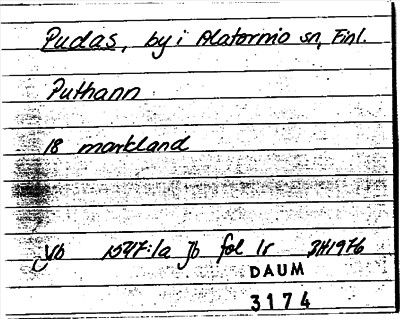 Pudas, by i Alatornio sn, Finl.
Puthann
18 markland
Vb 1547:1a Jb fol 1r 3H1976
DAUM
3174